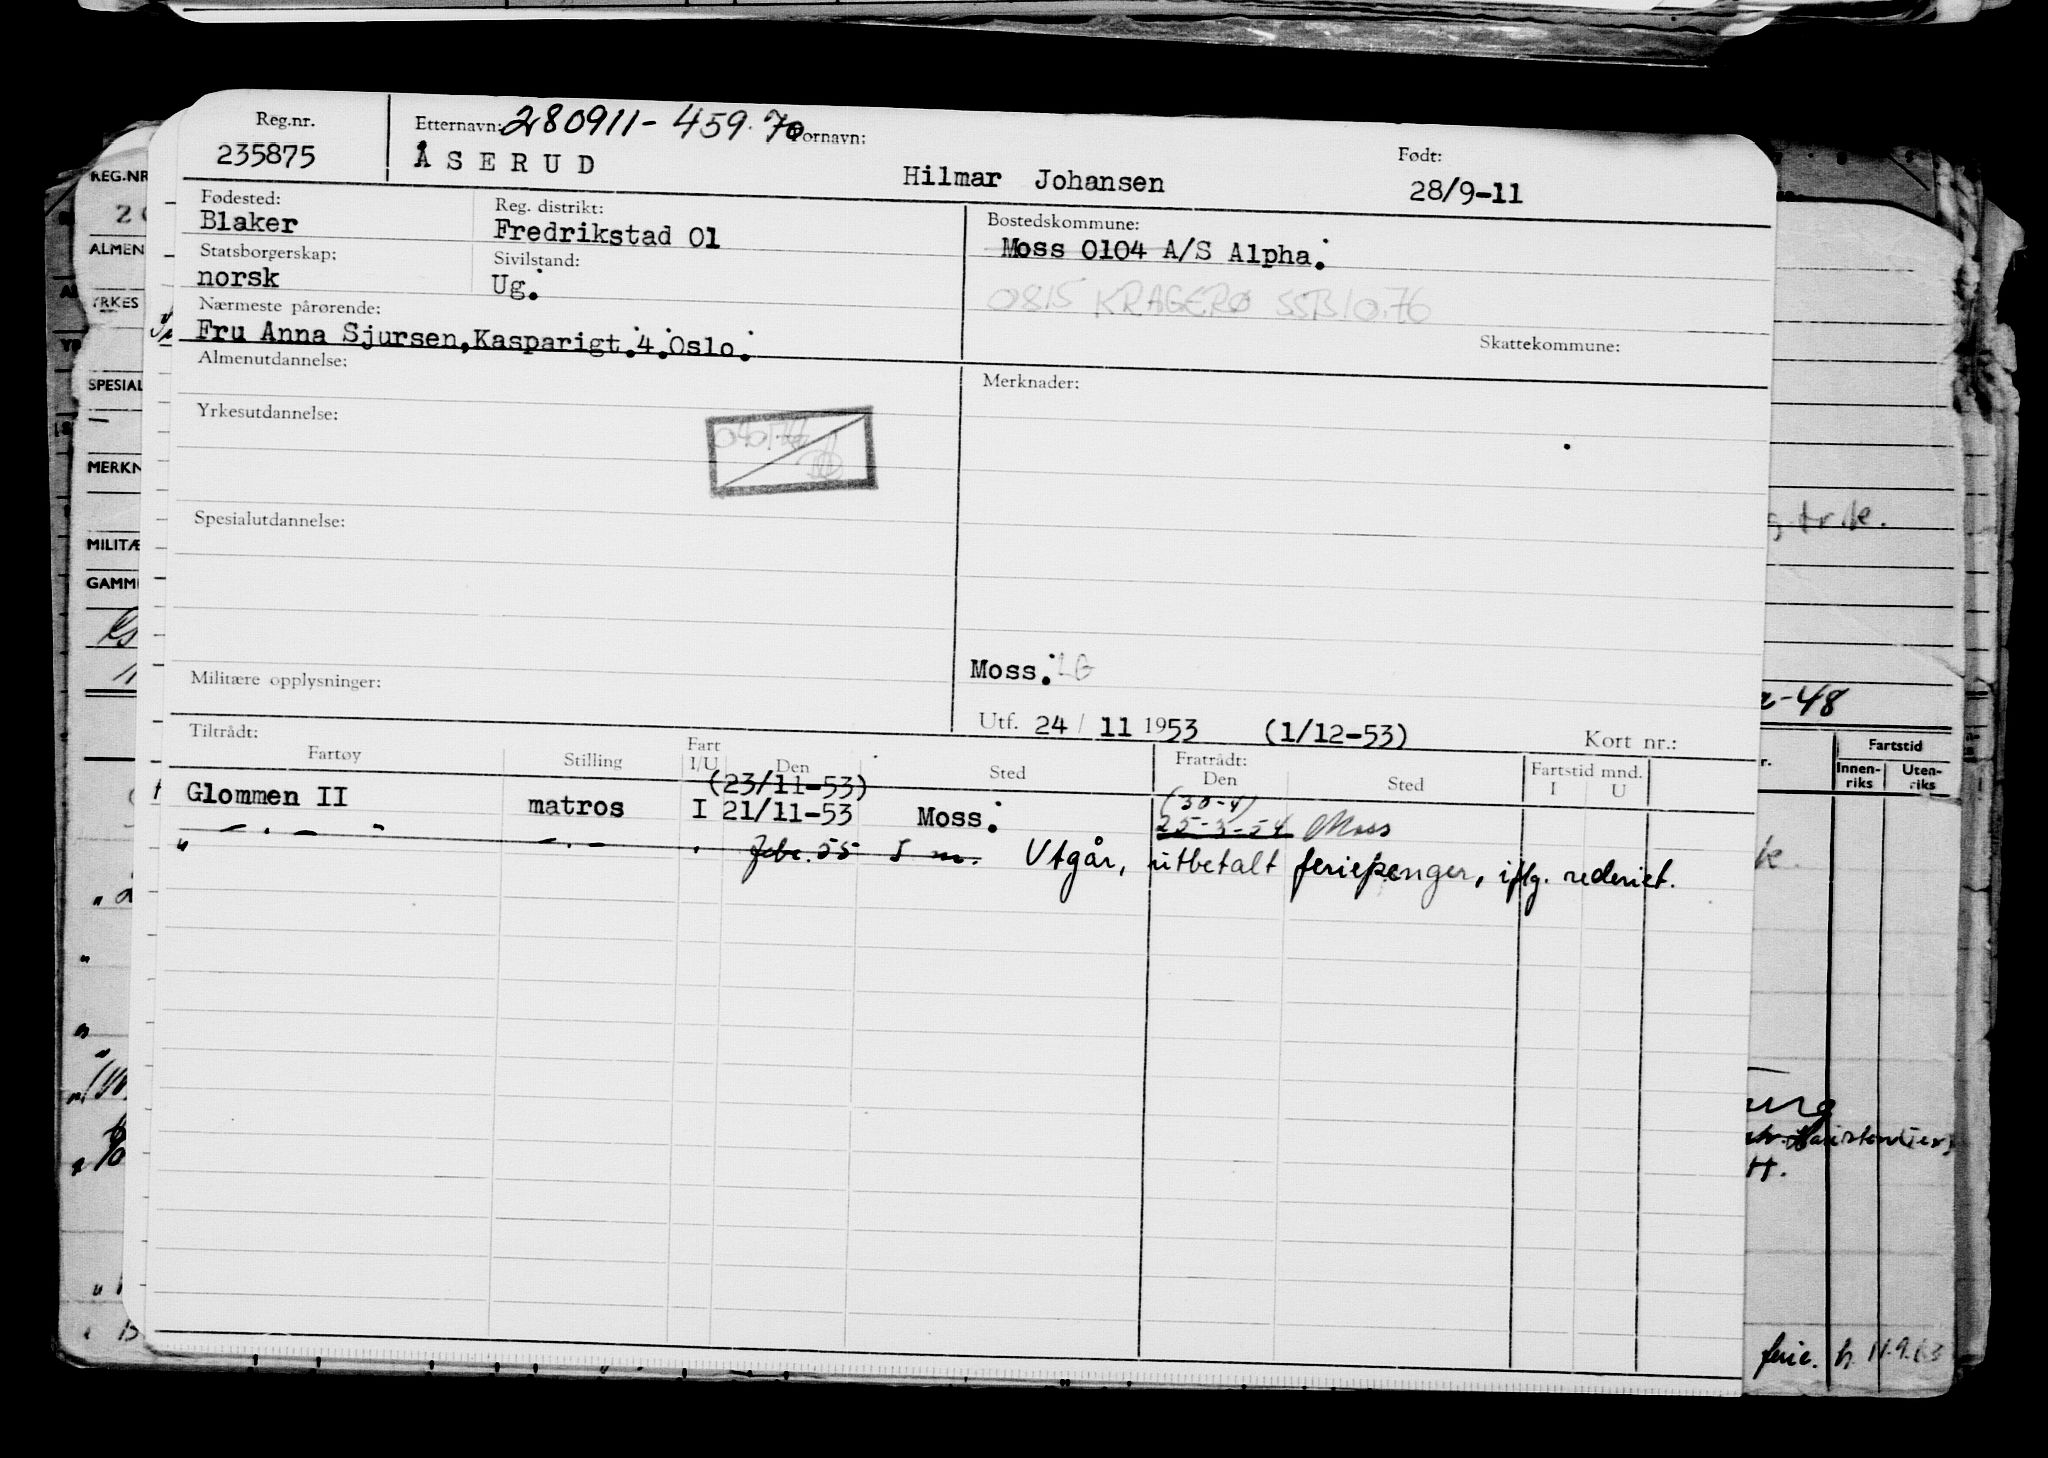 Reg.nr.
235875
Etternavn: 280911-459.70
Fornavn:
ÅSERUD
Hilmar Johansen
Født:
28/9-11
Fødested:
Blaker
Reg. distrikt:
Fredrikstad 01
Bostedskommune:
Moss 0104 A/S Alpha.
0815 KRAGERØ SSB 10.76
Statsborgerskap:
norsk
Sivilstand:
Ug.
Nærmeste pårørende:
Fru Anna Sjursen, Kasparigt.4.Oslo.
Skattekommune:
Almenutdannelse:
Merknader:
Yrkesutdannelse:
Spesialutdannelse:
Militære opplysninger:
Moss. LG
Utf. 24 / 11 1953 (1/12-53)
Kort nr.:
Tiltrådt:
Fartøy
Stilling
Fart
I/U
Den
Sted
Fratrådt:
Den
Sted
Fartstid mnd.
I U
(23/11-53)
(30-4)
Glommen II matros I 21/11-53 Moss. 25-3-54 Moss
" — . — " — . — " febr. 55 5 m. Utgår, utbetalt feriepenger, iflg. rederiet.
REG.NR
ALMEN
YRKES
SPESIAL
MERKN
MILITÆ
GAMM
-48
Fartstid
Innen-
riks
Uten-
riks
ferie. h 11.9.63